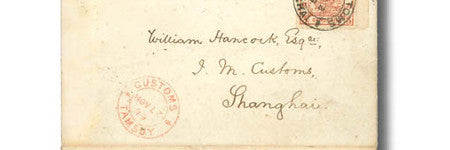 William Hancock, Esqre,
I. M. Customs,
Shanghai.
CUSTOMS
NOV
TAMSUY